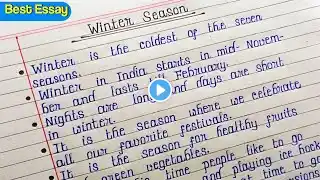 Best Essay
Winter Season
• Winter is the coldest of the seven
seasons.
• Winter in India starts in mid- Novem-
ber and lasts till February.
• Nights are long and days are short
in winter.
• It is the season where we celebrate
all our favorite festivals.
• It is the season for healthy fruits
green vegetables.
time people like to go
and playing ice hock
time to go